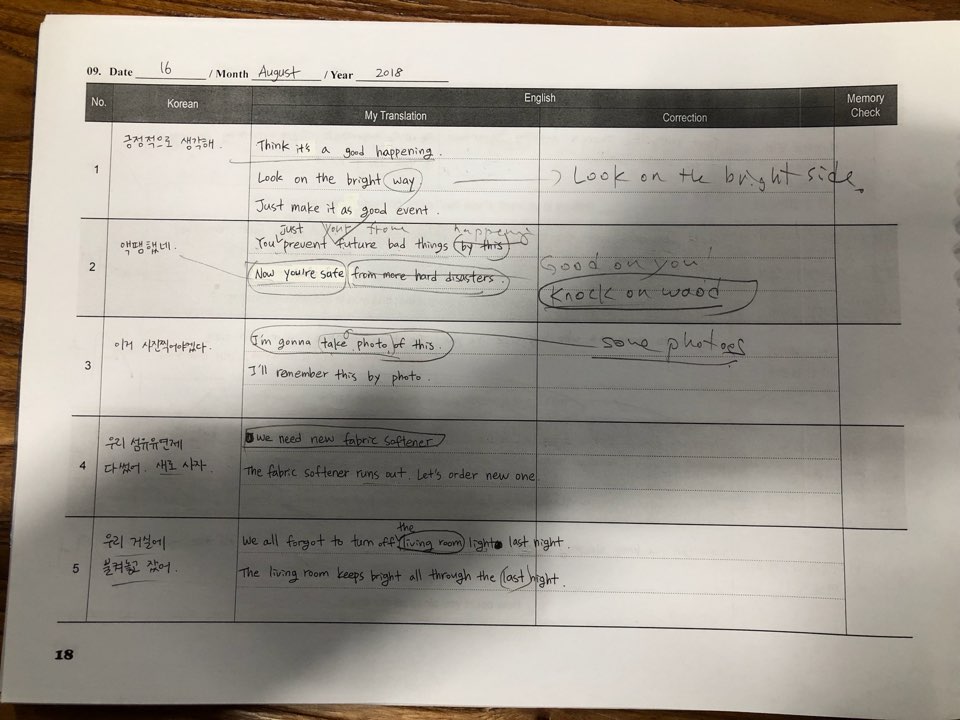 09. Date 16 / Month August / Year 2018
No. Korean English Memory Check
My Translation Correction
1 긍정적으로 생각해.
Think it's a good happening.
Look on the bright way
Look on the bright side.
Just make it as good event.
2 액땜했네.
just your from happening
You prevent future bad things by this
Now you're safe from more hard disasters.
Good on you!
Knock on wood
3 이거 사진찍어야겠다.
I'm gonna take photo of this.
some photoes
I'll remember this by photo.
4 우리 섬유유연제
다썼어. 새로 사자.
we need new fabric softener
The fabric softener runs out. Let's order new one
5 우리 거실에
불켜놓고 잤어.
the
We all forgot to turn off living room light last night.
The living room keeps bright all through the last night.
18